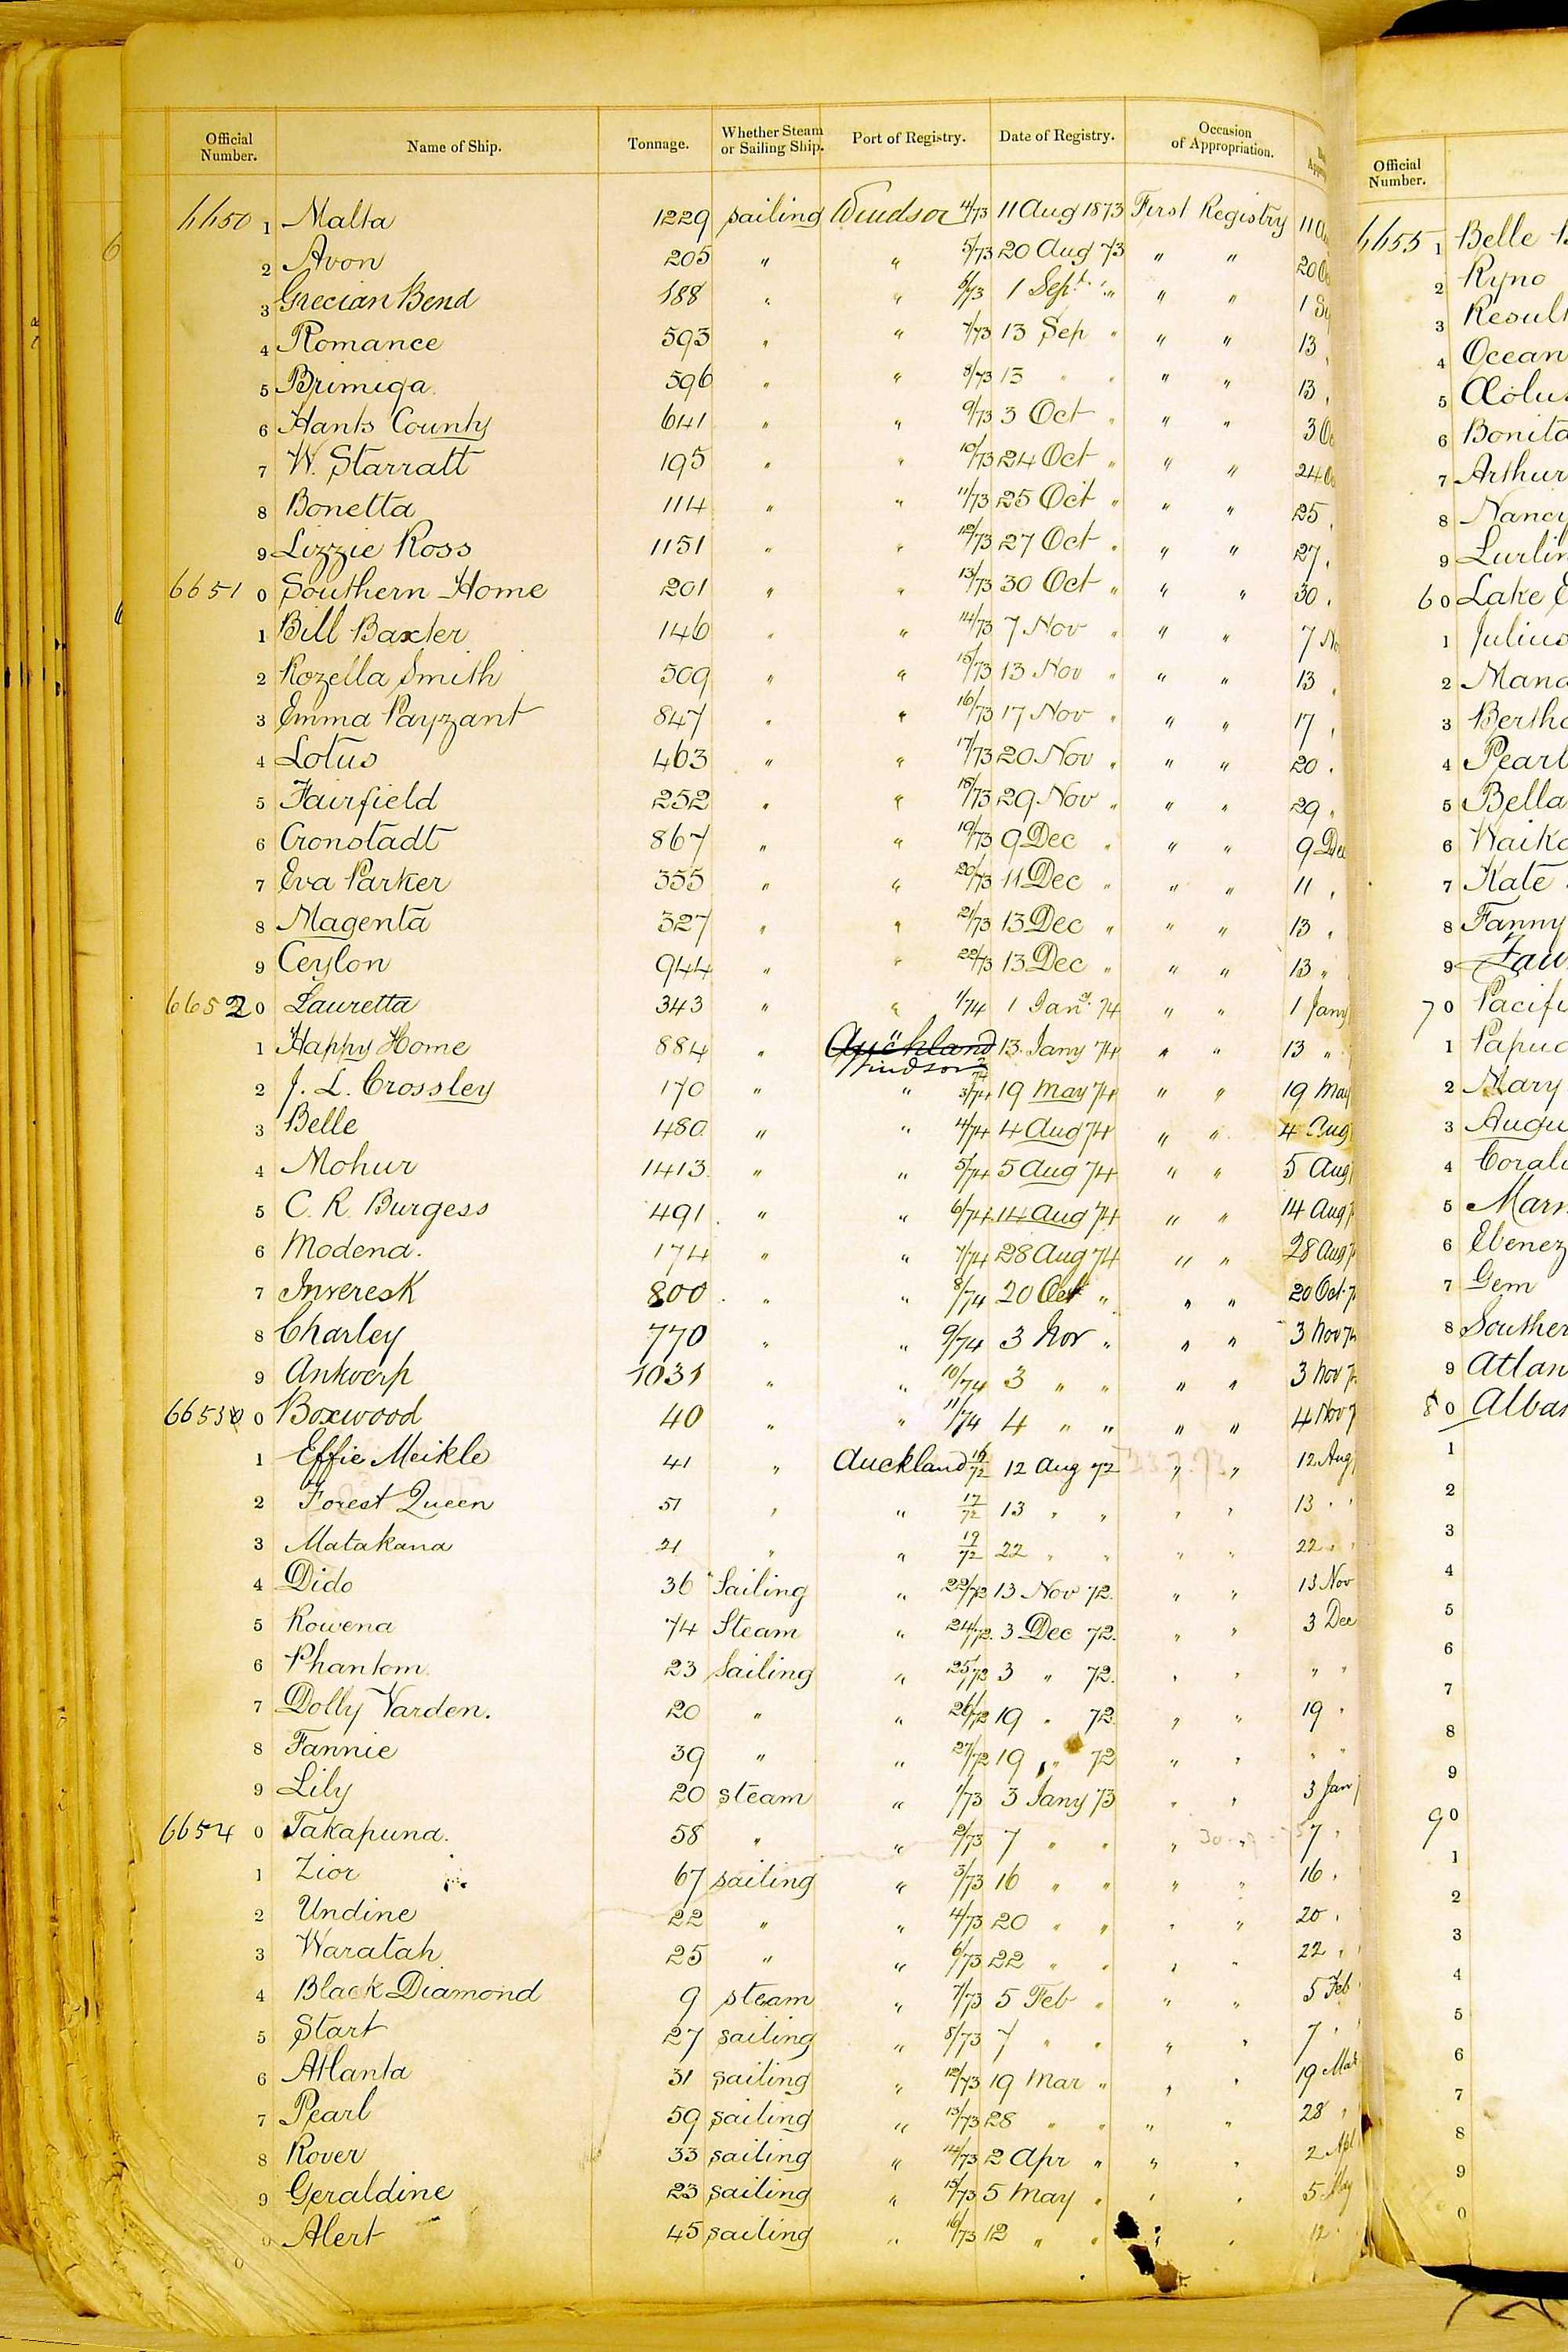 Official Number. Name of Ship. Tonnage. Whether Steam or Sailing Ship. Port of Registry. Date of Registry. Occasion of Appropriation.
6650 1 Malta 1229 sailing Windsor 4/73 11 Aug 1873 First Registry 11
2 Avon 205 " " 5/73 20 Aug 73 " " 20
3 Grecian Bend 188 " " 6/73 1 Sept " " " 1
4 Romance 593 " " 7/73 13 Sep " " " 13
5 Brimiga 596 " " 8/73 13 " " " " 13
6 Hants County 641 " " 9/73 3 Oct " " " 3
7 W. Starratt 195 " " 10/73 24 Oct " " " 24
8 Bonetta 1114 " " 11/73 25 Oct " " " 25
9 Lizzie Ross 1151 " " 12/73 27 Oct " " " 27
6651 0 Southern Home 201 " " 13/73 30 Oct " " " 30
1 Bill Baxter 146 " " 14/73 7 Nov " " " 7
2 Rozella Smith 509 " " 15/73 13 Nov " " " 13
3 Emma Payzant 847 " " 16/73 17 Nov " " " 17
4 Lotus 463 " " 17/73 20 Nov " " " 20
5 Fairfield 252 " " 18/73 29 Nov " " " 29
6 Cronstadt 867 " " 19/73 9 Dec " " " 9 Dec
7 Eva Parker 355 " " 20/73 11 Dec " " " 11
8 Magenta 327 " " 21/73 13 Dec " " " 13
9 Ceylon 944 " " 22/73 13 Dec " " " 13 "
6652 0 Lauretta 343 " " 1/74 1 Jany 74 " " 1 Jany
1 Happy Home 884 " Auckland 13 Jany 74 " " 13 "
Windsor 2/74
2 J. L. Crossley 170 " " 3/74 19 May 74 " " 19 May
3 Belle 480 " " 4/74 4 Aug 74 " " 4 Aug
4 Mohur 1413 " " 5/74 5 Aug 74 " " 5 Aug
5 C. R. Burgess 491 " " 6/74 14 Aug 74 " " 14 Aug
6 Modena. 174 " " 7/74 28 Aug 74 " " 28 Aug
7 Inveresk 800 " " 8/74 20 Oct " " " 20 Oct
8 Charley 770 " " 9/74 3 Nov " " " 3 Nov
9 Antwerp 1031 " " 10/74 3 " " " " 3 Nov
6653 0 Boxwood 40 " " 11/74 4 " " " " 4 Nov
1 Effie Meikle 41 " Auckland 16/72 12 Aug 72 " " 12 Aug
2 Forest Queen 51 " " 17/72 13 " " " " 13 " "
3 Matakana 21 " " 19/72 22 " " " " 22 " "
4 Dido 36 Sailing " 22/72 13 Nov 72. " " 13 Nov
5 Rowena 74 Steam " 24/72. 3 Dec 72. " " 3 Dec
6 Phantom 23 Sailing " 25/72 3 " 72. " " " "
7 Dolly Varden. 20 " " 26/72 19 " 72. " " 19 "
8 Fannie 39 " " 27/72 19 " 72 " " " "
9 Lily 20 steam " 1/73 3 Jany 73 " " 3 Jan
6654 0 Takapuna. 58 " " 2/73 7 " " " " 7 "
1 Zior 67 sailing " 3/73 16 " " " " 16 "
2 Undine 22 " " 4/73 20 " " " " 20 "
3 Waratah 25 " " 6/73 22 " " " " 22 "
4 Black Diamond 9 steam " 7/73 5 Feb " " " 5 Feb
5 Start 27 sailing " 8/73 7 " " " " 7 "
6 Atlanta 31 sailing " 12/73 19 Mar " " " 19 Mar
7 Pearl 59 sailing " 13/73 28 " " " " 28 "
8 Rover 33 sailing " 14/73 2 Apr " " " 2 Apl
9 Geraldine 23 sailing " 15/73 5 May " " " 5 May
0 Alert 45 sailing " 16/73 12 " " " " 12 "
0
Official Number.
6655 1 Belle
2 Ryno
3 Result
4 Ocean
5 Æolus
6 Bonita
7 Arthur
8 Nancy
9 Lurlin
60 Lake
1 Julius
2 Mana
3 Bertha
4 Pearl
5 Bella
6 Waika
7 Kate
8 Fanny
9
70 Pacifi
1 Papua
2 Mary
3 Augu
4 Corali
5 Mar
6 Ebenez
7 Gem
8 Souther
9 Atlan
80 Alba
1
2
3
4
5
6
7
8
9
90
1
2
3
4
5
6
7
8
9
0